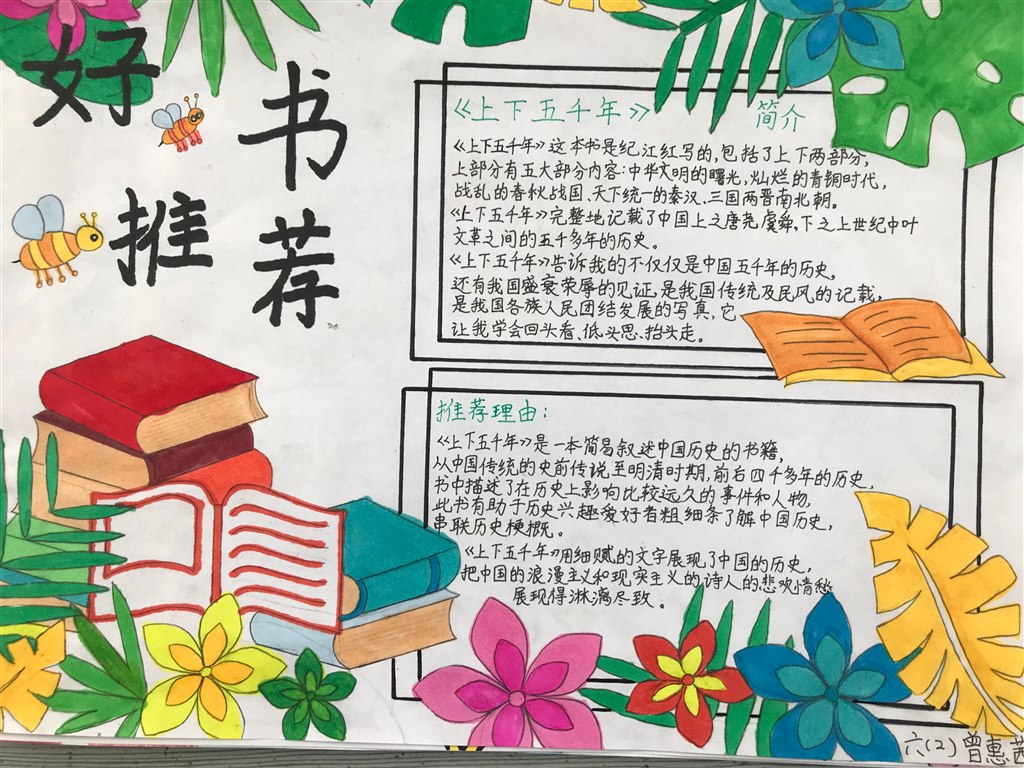 好书
推荐
《上下五千年》 简介
《上下五千年》这本书是纪江红写的,包括了上下两部分,
上部分有五大部分内容:中华文明的曙光,灿烂的青铜时代,
战乱的春秋战国、天下统一的秦汉、三国两晋南北朝。
《上下五千年》完整地记载了中国上之唐尧虞舜,下之上世纪中叶
文革之间的五千多年的历史。
《上下五千年》告诉我的不仅仅是中国五千年的历史,
还有我国盛衰荣辱的见证,是我国传统及民风的记载,
是我国各族人民团结发展的写真,它
让我学会回头看、低头思、抬头走。
推荐理由:
《上下五千年》是一本简易叙述中国历史的书籍,
从中国传统的史前传说至明清时期,前后四千多年的历史,
书中描述了在历史上影响比较远久的事件和人物,
此书有助于历史兴趣爱好者粗细条了解中国历史,
串联历史梗概。
《上下五千年》用细腻的文字展现了中国的历史,
把中国的浪漫主义和现实主义的诗人的悲欢情愁
展现得淋漓尽致。
六(2)曾惠茜